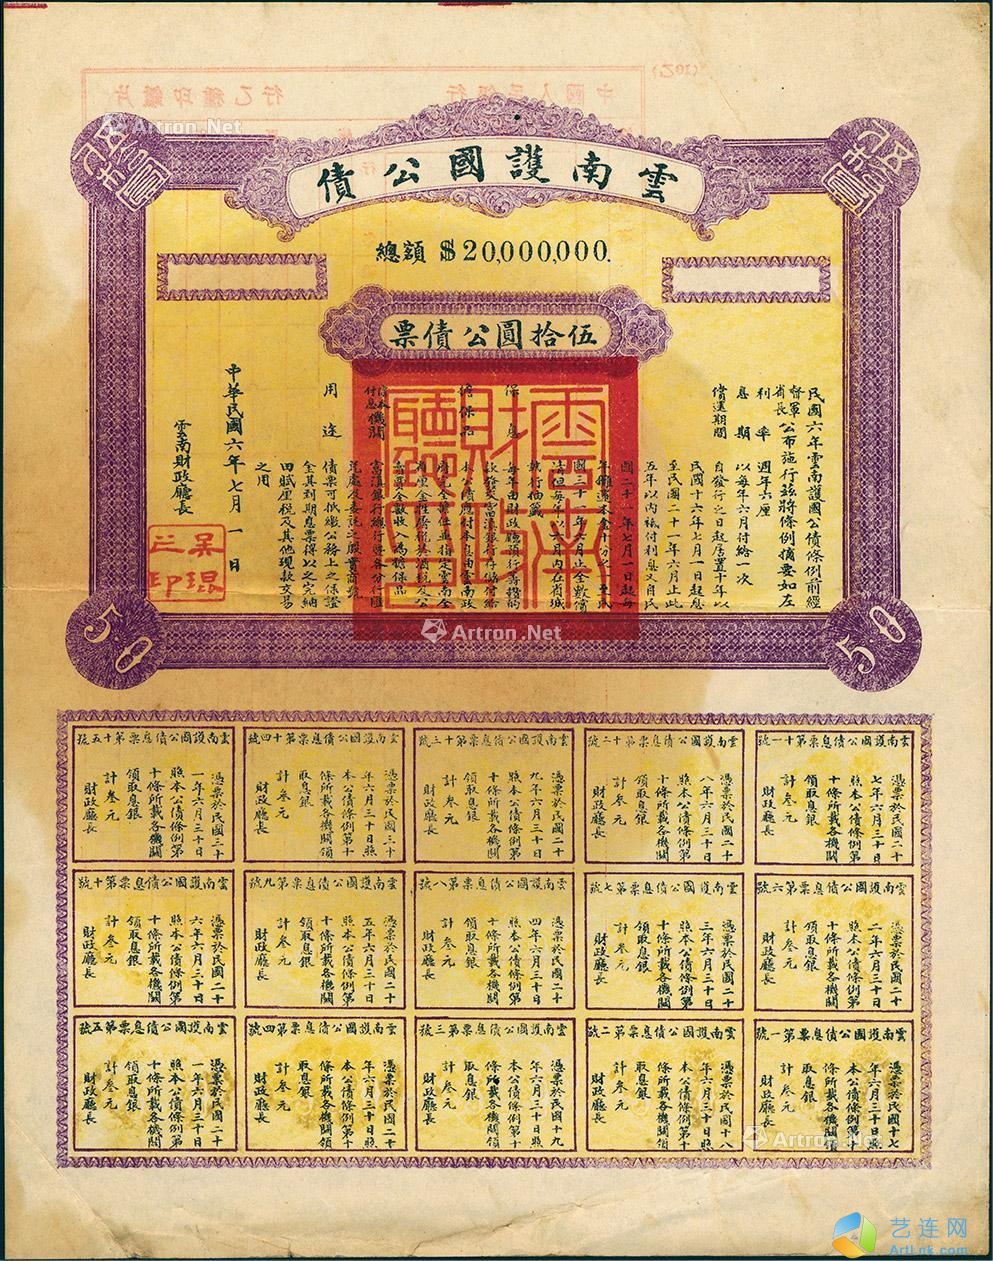 雲南護國公債
總額 $20,000,000.
伍拾圓公債票
民國六年雲南護國公債條例前經
督軍省長公布施行茲將條例摘要如左
利率 週年六厘
息期 以每年六月付給一次
償還期間 自發行之日起居置十年以
民國十六年七月一日起息
至民國二十一年六月止此
五年以內祗付利息又自民
國二十一年七月一日起每
年攤還本金十分之一至民
國三十一年六月止全數償
清但每年以六月內在省城
執行抽籤
保息 每年由財政廳預行籌撥的
款發交富滇銀行存儲付給
擔保品 本公債應付本息由雲南政
府完全負任並指定雲南全
省厘金牲屠稅菸酒稅及公
賣費全數收入為擔保品
還本付息機關 富滇銀行總行暨各分行匯
兌處及委託之殷實商號
用途 債票可抵繳公務上之保證
金其到期息票得以之完納
田賦厘稅及其他現款交易
之用
中華民國六年七月一日
雲南財政廳長
雲南財政廳印
50
50
Artron.Net
Artron.Net
雲南護國公債息票第十一號
憑票於民國二十
七年六月三十日
照本公債條例第
十條所載各機關
領取息銀
計叁元
財政廳長
雲南護國公債息票第十二號
憑票於民國二十
八年六月三十日
照本公債條例第
十條所載各機關
領取息銀
計叁元
財政廳長
雲南護國公債息票第十三號
憑票於民國二十
九年六月三十日
照本公債條例第
十條所載各機關
領取息銀
計叁元
財政廳長
雲南護國公債息票第十四號
憑票於民國三十
年六月三十日照
本公債條例第十
條所載各機關領
取息銀
計叁元
財政廳長
雲南護國公債息票第十五號
憑票於民國三十
一年六月三十日
照本公債條例第
十條所載各機關
領取息銀
計叁元
財政廳長
雲南護國公債息票第六號
憑票於民國二十
二年六月三十日
照本公債條例第
十條所載各機關
領取息銀
計叁元
財政廳長
雲南護國公債息票第七號
憑票於民國二十
三年六月三十日
照本公債條例第
十條所載各機關
領取息銀
計叁元
財政廳長
雲南護國公債息票第八號
憑票於民國二十
四年六月三十日
照本公債條例第
十條所載各機關
領取息銀
計叁元
財政廳長
雲南護國公債息票第九號
憑票於民國二十
五年六月三十日
照本公債條例第
十條所載各機關
領取息銀
計叁元
財政廳長
雲南護國公債息票第十號
憑票於民國二十
六年六月三十日
照本公債條例第
十條所載各機關
領取息銀
計叁元
財政廳長
雲南護國公債息票第一號
憑票於民國十七
年六月三十日照
本公債條例第十
條所載各機關領
取息銀
計叁元
財政廳長
雲南護國公債息票第二號
憑票於民國十八
年六月三十日照
本公債條例第十
條所載各機關領
取息銀
計叁元
財政廳長
雲南護國公債息票第三號
憑票於民國十九
年六月三十日照
本公債條例第十
條所載各機關領
取息銀
計叁元
財政廳長
雲南護國公債息票第四號
憑票於民國二十
年六月三十日照
本公債條例第十
條所載各機關領
取息銀
計叁元
財政廳長
雲南護國公債息票第五號
憑票於民國二十
一年六月三十日
照本公債條例第
十條所載各機關
領取息銀
計叁元
財政廳長
Artron.Net
艺连网
ArtLnk.com